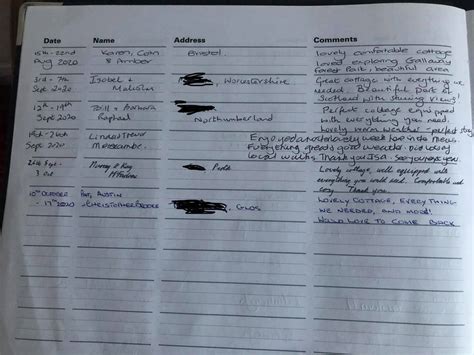 Date Name Address Comments
15th - 22nd Karen, Colin Bristol. Lovely comfortable cottage
Aug 2020 & Amber loved exploring Galloway
Forest Park, beautiful area
3rd - 7th Isobel & Worcestershire Great cottage with everything we
Sept. 2020 Malcolm needed. Beautiful part of
Scotland with stunning views!
12th - 19th Bill & Barbara Perfect cottage equipped
Sept 2020 Raphael Northumberland with everything you need,
lovely warm weather - perfect stay
19th - 26th Linda Enjoyed another lovely week here
Sept 2020 Morecambe. Everything great & good weather. Did
local walks. Thank you Isa - See you next yr.
26th Sept - Murray & Kay Perth Lovely cottage, well equipped with
3 Oct everything you could need. Comfortable and
cosy. Thank you.
10th October Pat, Austin , Glos LOVELY COTTAGE, EVERYTHING
- 17th 2020 & Christopher WE NEEDED, AND MORE!
WOULD LOVE TO COME BACK